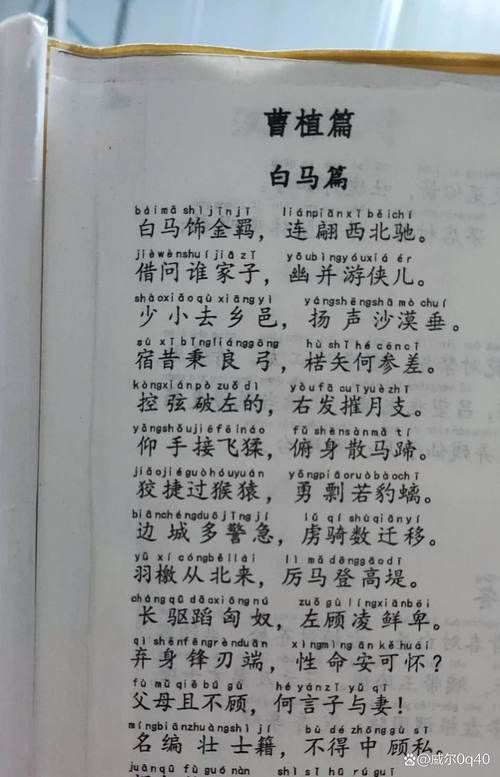 曹植篇
白马篇
báimǎ shì jīn jī liánpiān xī běi chí
白马饰金羁，连翩西北驰。
jiè wèn shuí jiā zǐ yōu bìng yóu xiá ér
借问谁家子，幽并游侠儿。
shào xiǎo qù xiāng yì yáng shēng shā mò chuí
少小去乡邑，扬声沙漠垂。
sù xī bǐng liáng gōng hù shǐ hé cēn cī
宿昔秉良弓，楛矢何参差。
kòng xián pò zuǒ dì yòu fā cuī yuè zhī
控弦破左的，右发摧月支。
yǎng shǒu jiē fēi náo fǔ shēn sàn mǎ tí
仰手接飞猱，俯身散马蹄。
jiǎo jié guò hóu yuán yǒng piāo ruò bào chī
狡捷过猴猿，勇剽若豹螭。
biān chéng duō jǐng jí lǔ qí shù qiān yí
边城多警急，虏骑数迁移。
yǔ xí cóng běi lái lì mǎ dēng gāo dī
羽檄从北来，厉马登高堤。
cháng qū dǎo xiōng nú zuǒ gù líng xiān bēi
长驱蹈匈奴，左顾凌鲜卑。
qì shēn fēng rèn duān xìng mìng ān kě huái
弃身锋刃端，性命安可怀？
fù mǔ qiě bú gù hé yán zǐ yǔ qī
父母且不顾，何言子与妻！
míng biān zhuàng shì jí bù dé zhōng gù sī
名编壮士籍，不得中顾私。
juān qū fù guó nàn shì sǐ hū rú guī
@威尔0q40